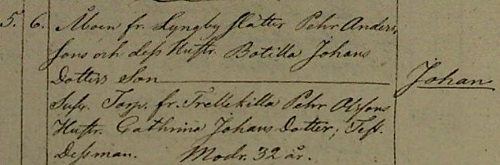 5. 6. Åboen fr. Lyngby slätter Pehr Anders
sons och dess Hustr. Botilla Johans
Dotters Son Johan
Susc. Torp. fr. Trollekilla Pehr Olssons
Hustr. Cathrina Johans Dotter; Test.
Dess man. Modr. 32 år.